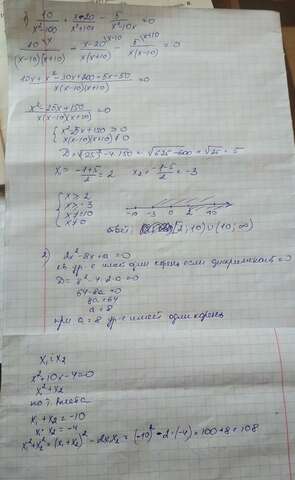 1) 10/(x²-100) + (x-20)/(x²+10x) - 5/(x²-10x) = 0
10/((x-10)(x+10)) - (x-20)/(x(x+10)) - 5/(x(x-10)) = 0
(10x + x² - 30x + 200 - 5x - 50)/(x(x-10)(x+10)) = 0
(x² - 25x + 150)/(x(x-10)(x+10)) = 0
x² - 25x + 150 > 0
x(x-10)(x+10) ≠ 0
D = √25² - 4·150 = √625-600 = √25 = 5
x₁ = (-1+5)/2 = 2 x₂ = (-1-5)/2 = -3
x > 2
x > -3
x ≠ 10
x ≠ 0
-10 -3 2 10
Ответ: (2; 10) ∪ (10; ∞)
2) 2x² - 8x + a = 0
ур-е имеет один корень если дискриминант = 0
D = 8² - 4·2·a = 0
64 - 8a = 0
8a = 64
a = 8
при a = 8 ур-е имеет один корень
x₁; x₂
x² + 10x - 4 = 0
x₁² + x₂²
по т. Виета
x₁ + x₂ = -10
x₁ · x₂ = -4
x₁² + x₂² = (x₁ + x₂)² - 2x₁x₂ = (-10)² - 2·(-4) = 100 + 8 = 108